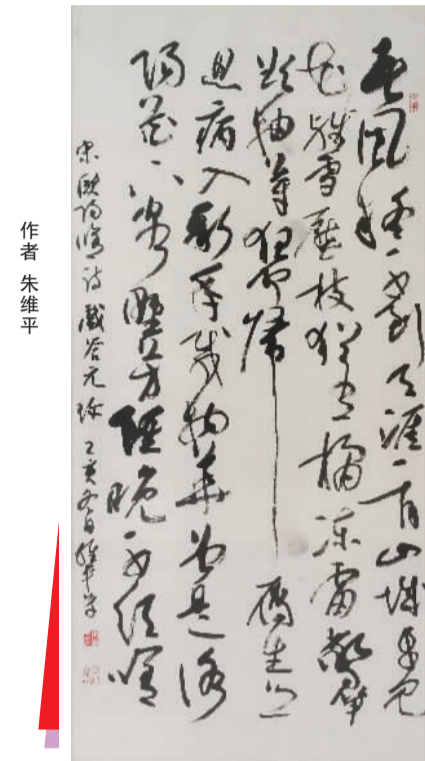 春风疑不到天涯二月山城未见
花残雪压枝犹有橘冻雷惊笋
欲抽芽夜闻归雁生乡
思病入新年感物华曾是洛
阳花下客野芳虽晚不须嗟
宋欧阳修诗戏答元珍 乙亥冬日维平书
作者 朱维平